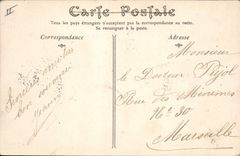 II
Carte Postale
Tous les pays étrangers n'acceptent pas la correspondance au recto.
Se renseigner à la poste.
Correspondance
Adresse
Sincères amitiés
bon souvenir
Monsieur
le Docteur Pujol
Rue des Minimes
N° 30
Marseille